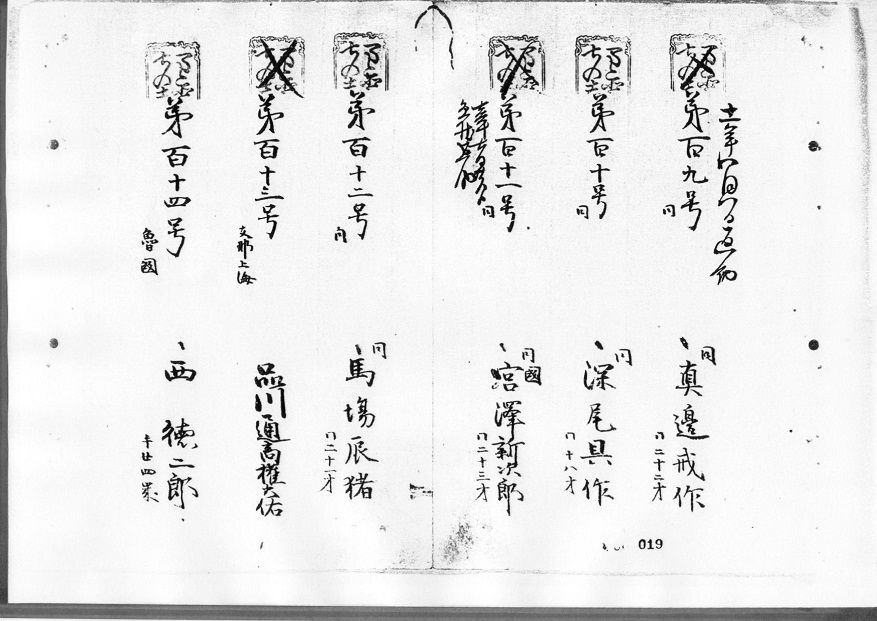 第百九号
同
同
真邊戒作
同二十二才
第百十号
同
同
深尾具作
同十八才
第百十一号
同
同國
宮澤新次郎
同二十三才
第百十二号
同
同
馬場辰猪
同二十一才
第百十三号
支那上海
品川通商権大佑
第百十四号
魯國
西 徳二郎
年廿四歳
019